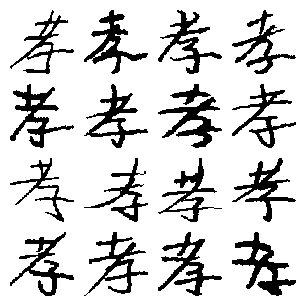 孝孝孝孝
孝孝孝孝
孝孝孝孝
孝孝孝孝